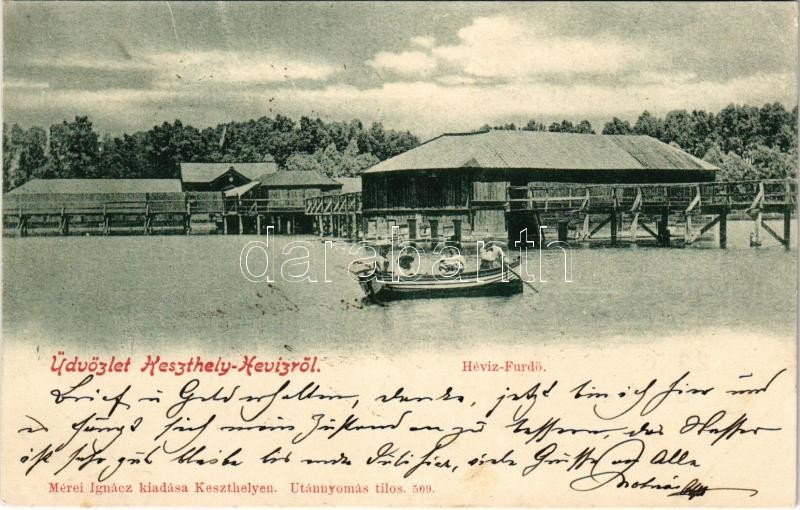 darabanth
Üdvözlet Keszthely-Hevizről.
Héviz-Furdő.
Brief u Geld erhalten, danke, jetzt bin ich hier und
es fängt sich mein Zustand an zu bessern, das Wasser
ist sehr gut bleibe bis Juli hier, viele Grüsse an Alle
Mérei Ignácz kiadása Keszthelyen. Utánnyomás tilos. 509.